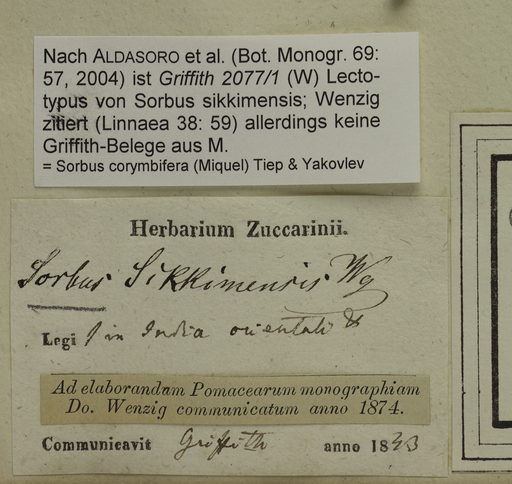 Nach ALDASORO et al. (Bot. Monogr. 69:
57, 2004) ist Griffith 2077/1 (W) Lecto-
typus von Sorbus sikkimensis; Wenzig
zitiert (Linnaea 38: 59) allerdings keine
Griffith-Belege aus M.
= Sorbus corymbifera (Miquel) Tiep & Yakovlev
Herbarium Zuccarinii.
Sorbus Sikkimensis Wg
Legi in India orientali
Ad elaborandum Pomacearum monographiam
Do. Wenzig communicatum anno 1874.
Communicavit Griffith anno 1843